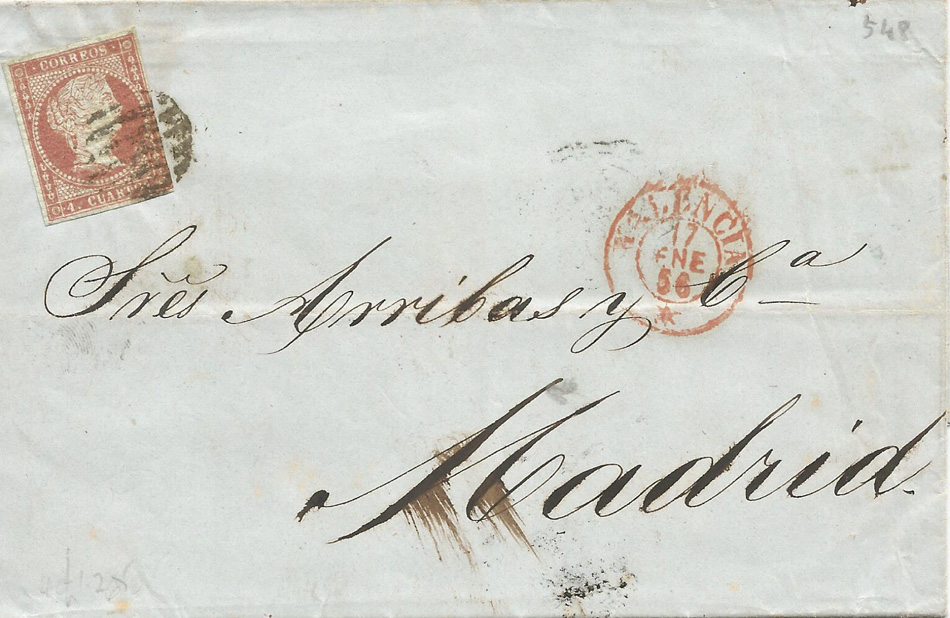 548
CORREOS
4. CUARTOS
VALENCIA
17
ENE
56
Sres Arribas y Ca
Madrid.